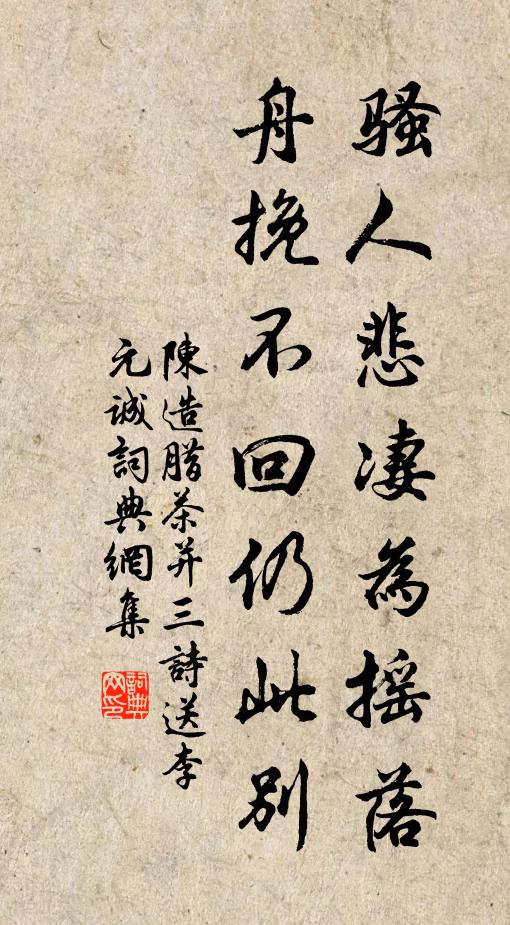 騷人悲凄為摇落
舟挽不回仍此別
陳造腊茶并三詩送李
元诚詞典網集
詞典網印